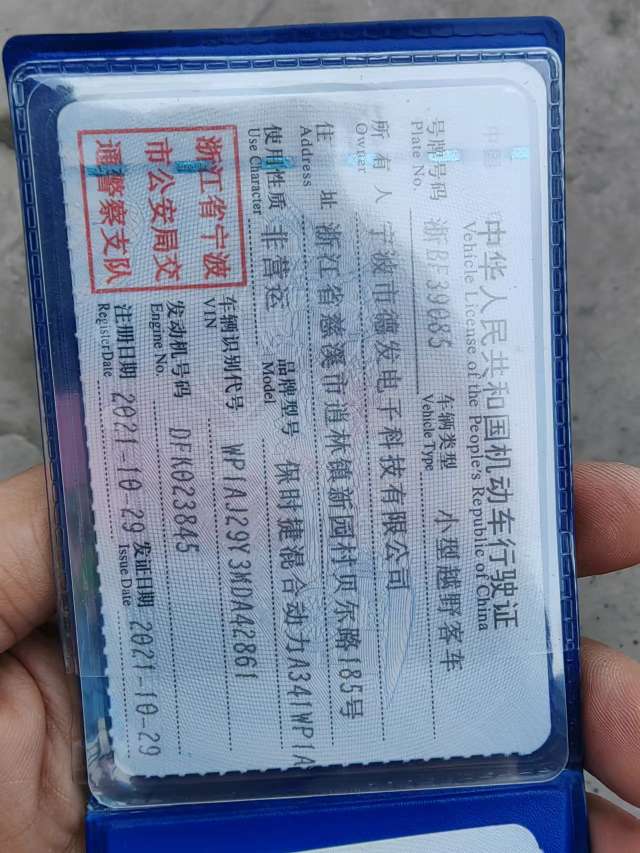 中华人民共和国机动车行驶证
Vehicle License of the People's Republic of China
号牌号码 浙BF39085 车辆类型 小型越野客车
Plate No. Vehicle Type
所有人 宁波市德发电子科技有限公司
Owner
住址 浙江省慈溪市逍林镇新园村贝尔路185号
Address
使用性质 非营运 品牌型号 保时捷混合动力A341WP1A
Use Character Model
浙江省宁波
市公安局交
通警察支队
车辆识别代号 WP1AJ29Y3MDA42861
VIN
发动机号码 DFK023845
Engine No.
注册日期 2021-10-29 发证日期 2021-10-29
Register Date Issue Date